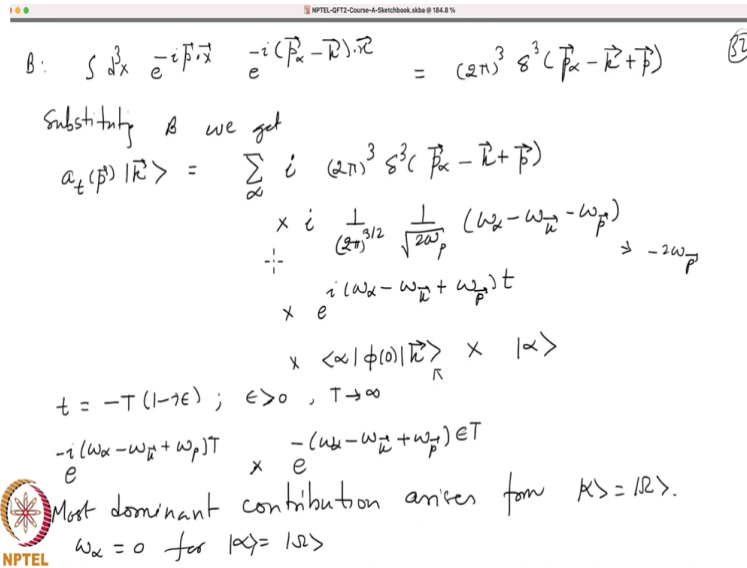 NPTEL-QFT2-Course-A-Sketchbook.skba @ 184.8 %
B: ∫ d³x e^{-i p⃗·x⃗} e^{-i(p⃗_α - k⃗)·x⃗} = (2π)³ δ³(p⃗_α - k⃗ + p⃗)
Substituting B we get
a_t(p⃗) |k⃗> = Σ_α i (2π)³ δ³(p⃗_α - k⃗ + p⃗)
× i 1/(2π)^{3/2} 1/√(2ω_p) (ω_α - ω_k⃗ - ω_p⃗) → -2ω_p⃗
× e^{i(ω_α - ω_k⃗ + ω_p⃗)t}
× <α|φ(0)|k⃗> × |α>
t = -T(1-iε) ; ε>0 , T→∞
e^{-i(ω_α - ω_k⃗ + ω_p)T} × e^{-(ω_α - ω_k⃗ + ω_p⃗)εT}
Most dominant contribution arises from |α> = |Ω>.
ω_α = 0 for |α> = |Ω>
NPTEL